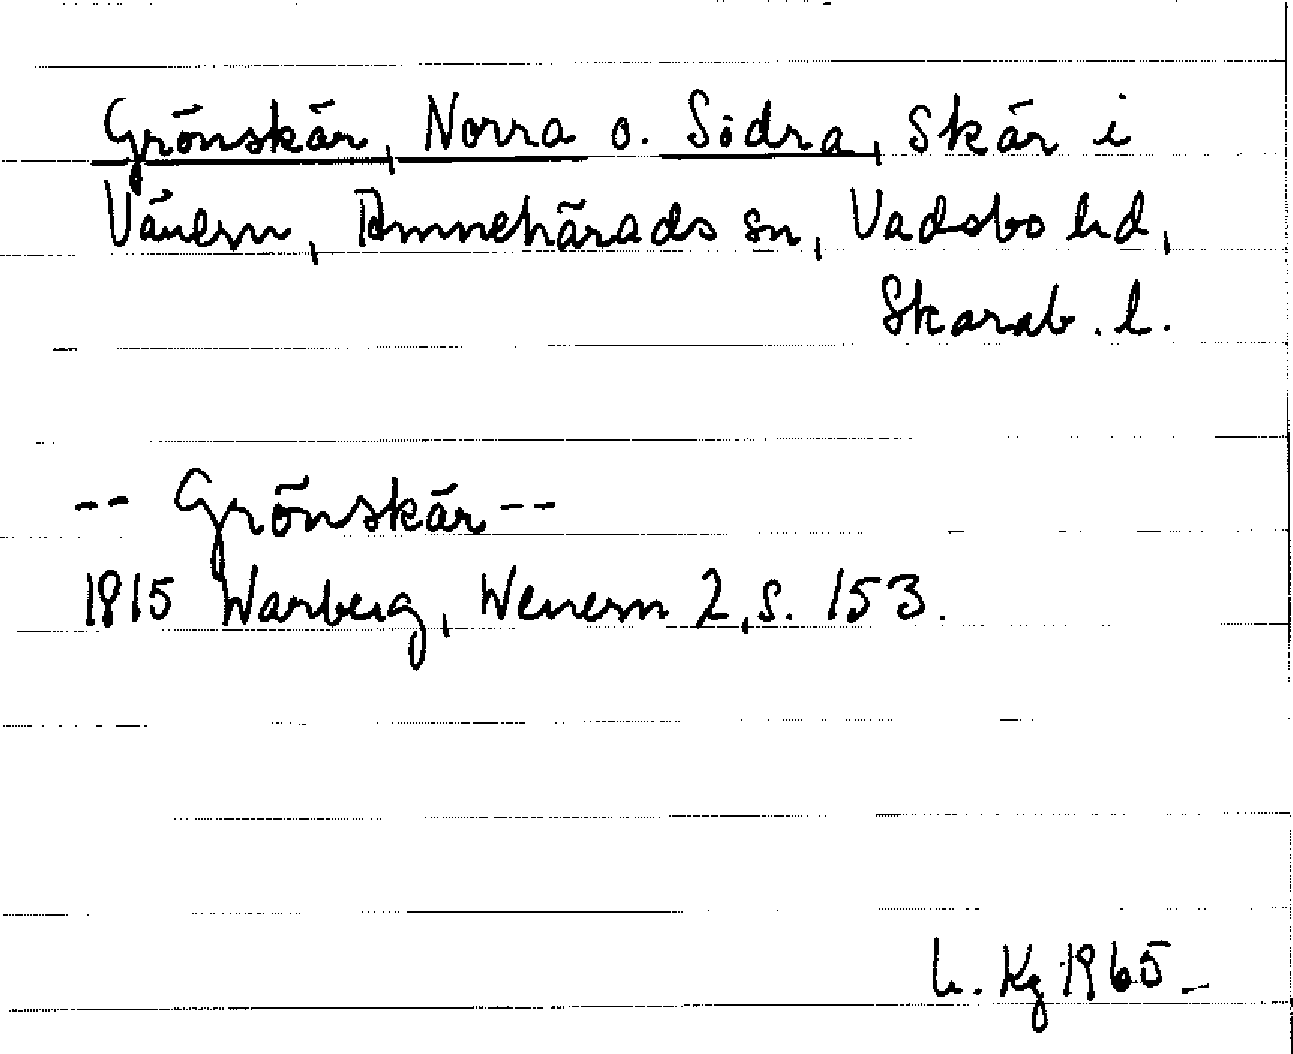 Grönskär, Norra o. Södra, Skär i
Vänern, Amnehärads sn, Vadsbo hd,
Skarab. l.
-- Grönskär --
1915 Warberg, Wenern 2, s. 153.
L. Kg 1965